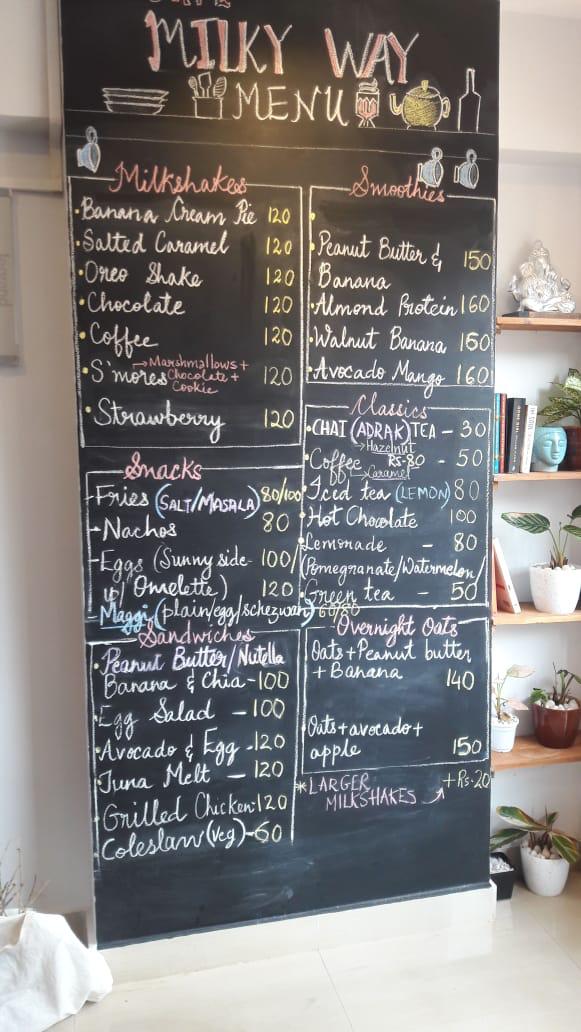 CAFE
MILKY WAY
MENU
Milkshakes
Banana Cream Pie 120
Salted Caramel 120
Oreo Shake 120
Chocolate 120
Coffee 120
S'mores → Marshmallows + 120
Chocolate +
Cookie
Strawberry 120
Smoothies
Peanut Butter & 150
Banana
Almond Protein 160
Walnut Banana
Avocado Mango 160
Classics
CHAI (ADRAK) TEA - 30
→ Hazelnut
Coffee Rs-80 - 50
→ Caramel
Iced tea (LEMON) 80
Hot Chocolate 100
Lemonade - 80
(Pomegranate/Watermelon)
Green tea - 50
Snacks
Fries (SALT/MASALA) 80/100
Nachos 80
Eggs (Sunny side- 100/
up/Omelette) 120
Maggi (plain/egg/schezwan) 60/80
Sandwiches
Peanut Butter/Nutella
Banana & Chia - 100
Egg Salad - 100
Avocado & Egg - 120
Tuna Melt - 120
Grilled Chicken: 120
Coleslaw (veg) - 60
Overnight Oats
Oats + Peanut butter
+ Banana
140
Oats + avocado +
apple 150
* LARGER + Rs. 20
MILKSHAKES